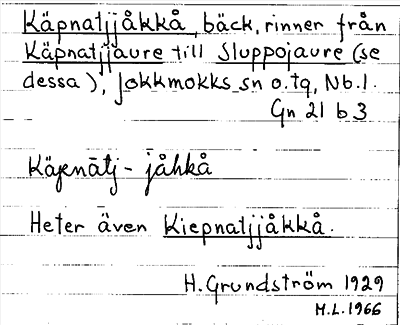 Käpnatjjåkkå, bäck, rinner från
Käpnatjjaure till Sluppojaure (se
dessa), Jokkmokks sn o. tg, Nb. l.
Gn 21 b 3
Käpenātj - jåhkå
Heter även Kiepnatjjåkkå.
H. Grundström 1929
M.L. 1966